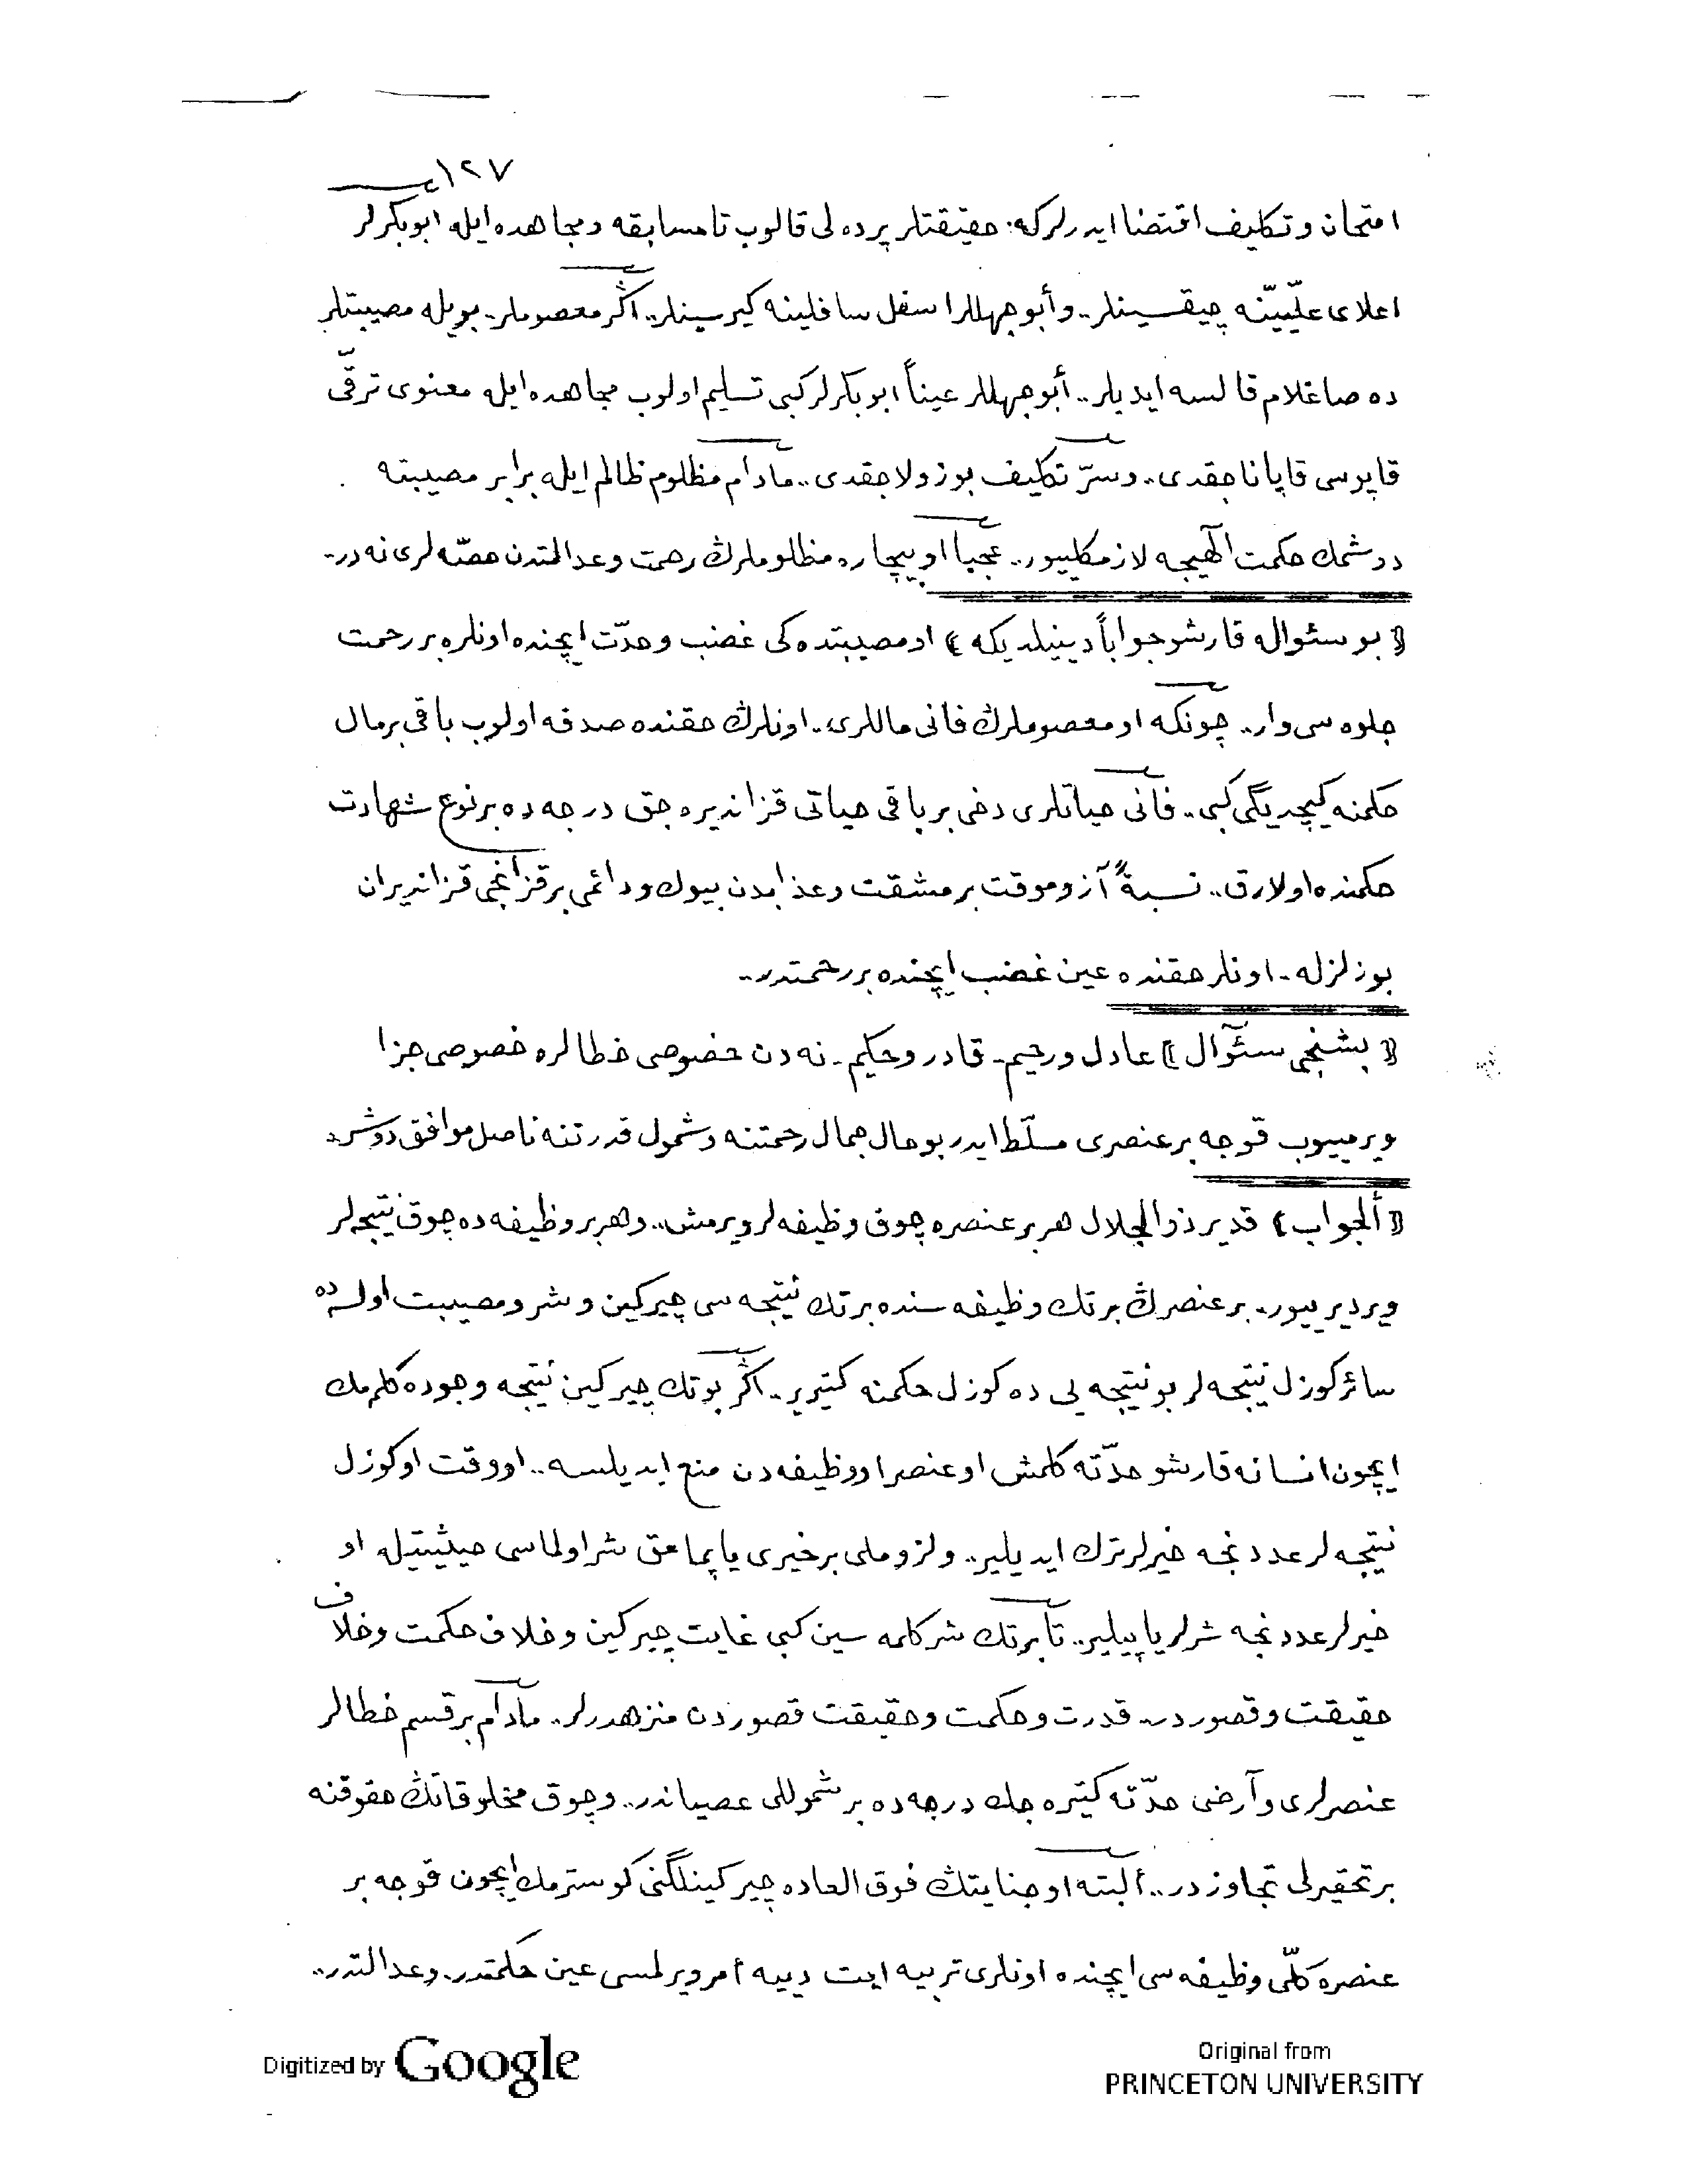 ١٢٧
امتحان و تكليف اقتضا ايدرلركه: حقيقتلر پرده‌لى قالوب تا مسابقه و مجاهده ايله ابوبكرلر
اعلاى علّيّينه چيقسينلر.. و أبوجهللر اسفل سافلينه كيرسينلر.. اگر معصوملر.. بويله مصيبتلر
ده صاغلام قالسه ايديلر.. أبوجهللر عيناً ابوبكرلر كبى تسليم اولوب مجاهده ايله معنوى ترقّى
قاپوسى قاپاناجقدى.. و سرّ تكليف بوزولاجقدى.. مادام مظلوم ظالم ايله برابر مصيبته
دوشمك حكمت الٓهيجه لازمكلييور.. عجبا او بيچاره مظلوملرڭ رحمت و عدالتدن حصّه‌لرى نه‌در..
﴿ بو سئواله قارشو جواباً دينيلديكه ﴾ او مصيبتده‌كى غضب و حدّت ايچنده اونلره بر رحمت
جلوه‌سى وار.. چونكه او معصوملرڭ فانى ماللرى.. اونلرڭ حقنده صدقه اولوب باقى بر مال
حكمنه كيچديگى كبى.. فانى حياتلرى دخى بر باقى حياتى قزانديره‌جق درجه‌ده بر نوع شهادت
حكمنده اولارق.. نسبةً آز و موقت بر مشقت و عذابدن بيوك و دائمى بر قزانجى قزانديران
بو زلزله.. اونلر حقنده عين غضب ايچنده بر رحمتدر..
﴿ بشنجى سئوال ﴾ عادل و رحيم.. قادر و حكيم.. نه‌دن خصوصى خطالره خصوصى جزا
ويرمييوب قوجه بر عنصرى مسلّط ايدر بو حال جمال رحمتنه و شمول قدرتنه ناصل موافق دوشر.
﴿ ألجواب ﴾ قدير ذوالجلال هر بر عنصره چوق وظيفه‌لر ويرمش.. و هر بر وظيفه‌ده چوق نتيجه‌لر
ويرديرييور.. بر عنصرڭ بر تك وظيفه‌سنده بر تك نتيجه‌سى چيركين و شر و مصيبت اولسه‌ده
سائر كوزل نتيجه‌لر بو نتيجه‌يى ده كوزل حكمنه كتيرير.. اگر بو تك چيركين نتيجه وجوده كلمه‌مك
ايچون انسانه قارشو حدّته كلمش او عنصر او وظيفه‌دن منع ايديلسه.. او وقت او كوزل
نتيجه‌لر عددنجه خيرلر ترك ايديلير.. و لزوملى بر خيرى ياپمامق شر اولماسى حيثيتيله او
خيرلر عددنجه شرلر ياپيلير.. تا بر تك شر كلمه‌سين كبى غايت چيركين و خلاف حكمت و خلاف
حقيقت و قصوردر.. قدرت و حكمت و حقيقت قصوردن منزهدرلر.. مادام بر قسم خطالر
عنصرلرى و آرضى حدّته كتيره‌جك درجه‌ده بر شموللى عصياندر.. و چوق مخلوقاتڭ حقوقنه
بر تحقيرلى تجاوزدر.. ألبته او جنايتڭ فوق العاده چيركينلگنى كوسترمك ايچون قوجه بر
عنصره كلّى وظيفه‌سى ايچنده اونلرى تربيه ايت دييه أمر ويرلمسى عين حكمتدر.. و عدالتدر..
Digitized by Google
Original from
PRINCETON UNIVERSITY